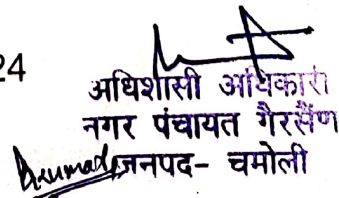 24
अधिशासी अधिकारी
नगर पंचायत गैरसैंण
जनपद- चमोली